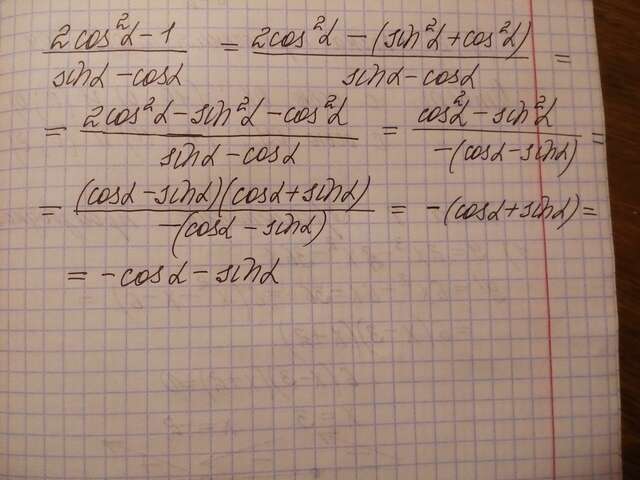 (2cos²α - 1)/(sinα - cosα) = (2cos²α - (sin²α + cos²α))/(sinα - cosα) =
= (2cos²α - sin²α - cos²α)/(sinα - cosα) = (cos²α - sin²α)/(-(cosα - sinα)) =
= (cosα - sinα)(cosα + sinα)/(-(cosα - sinα)) = -(cosα + sinα) =
= -cosα - sinα